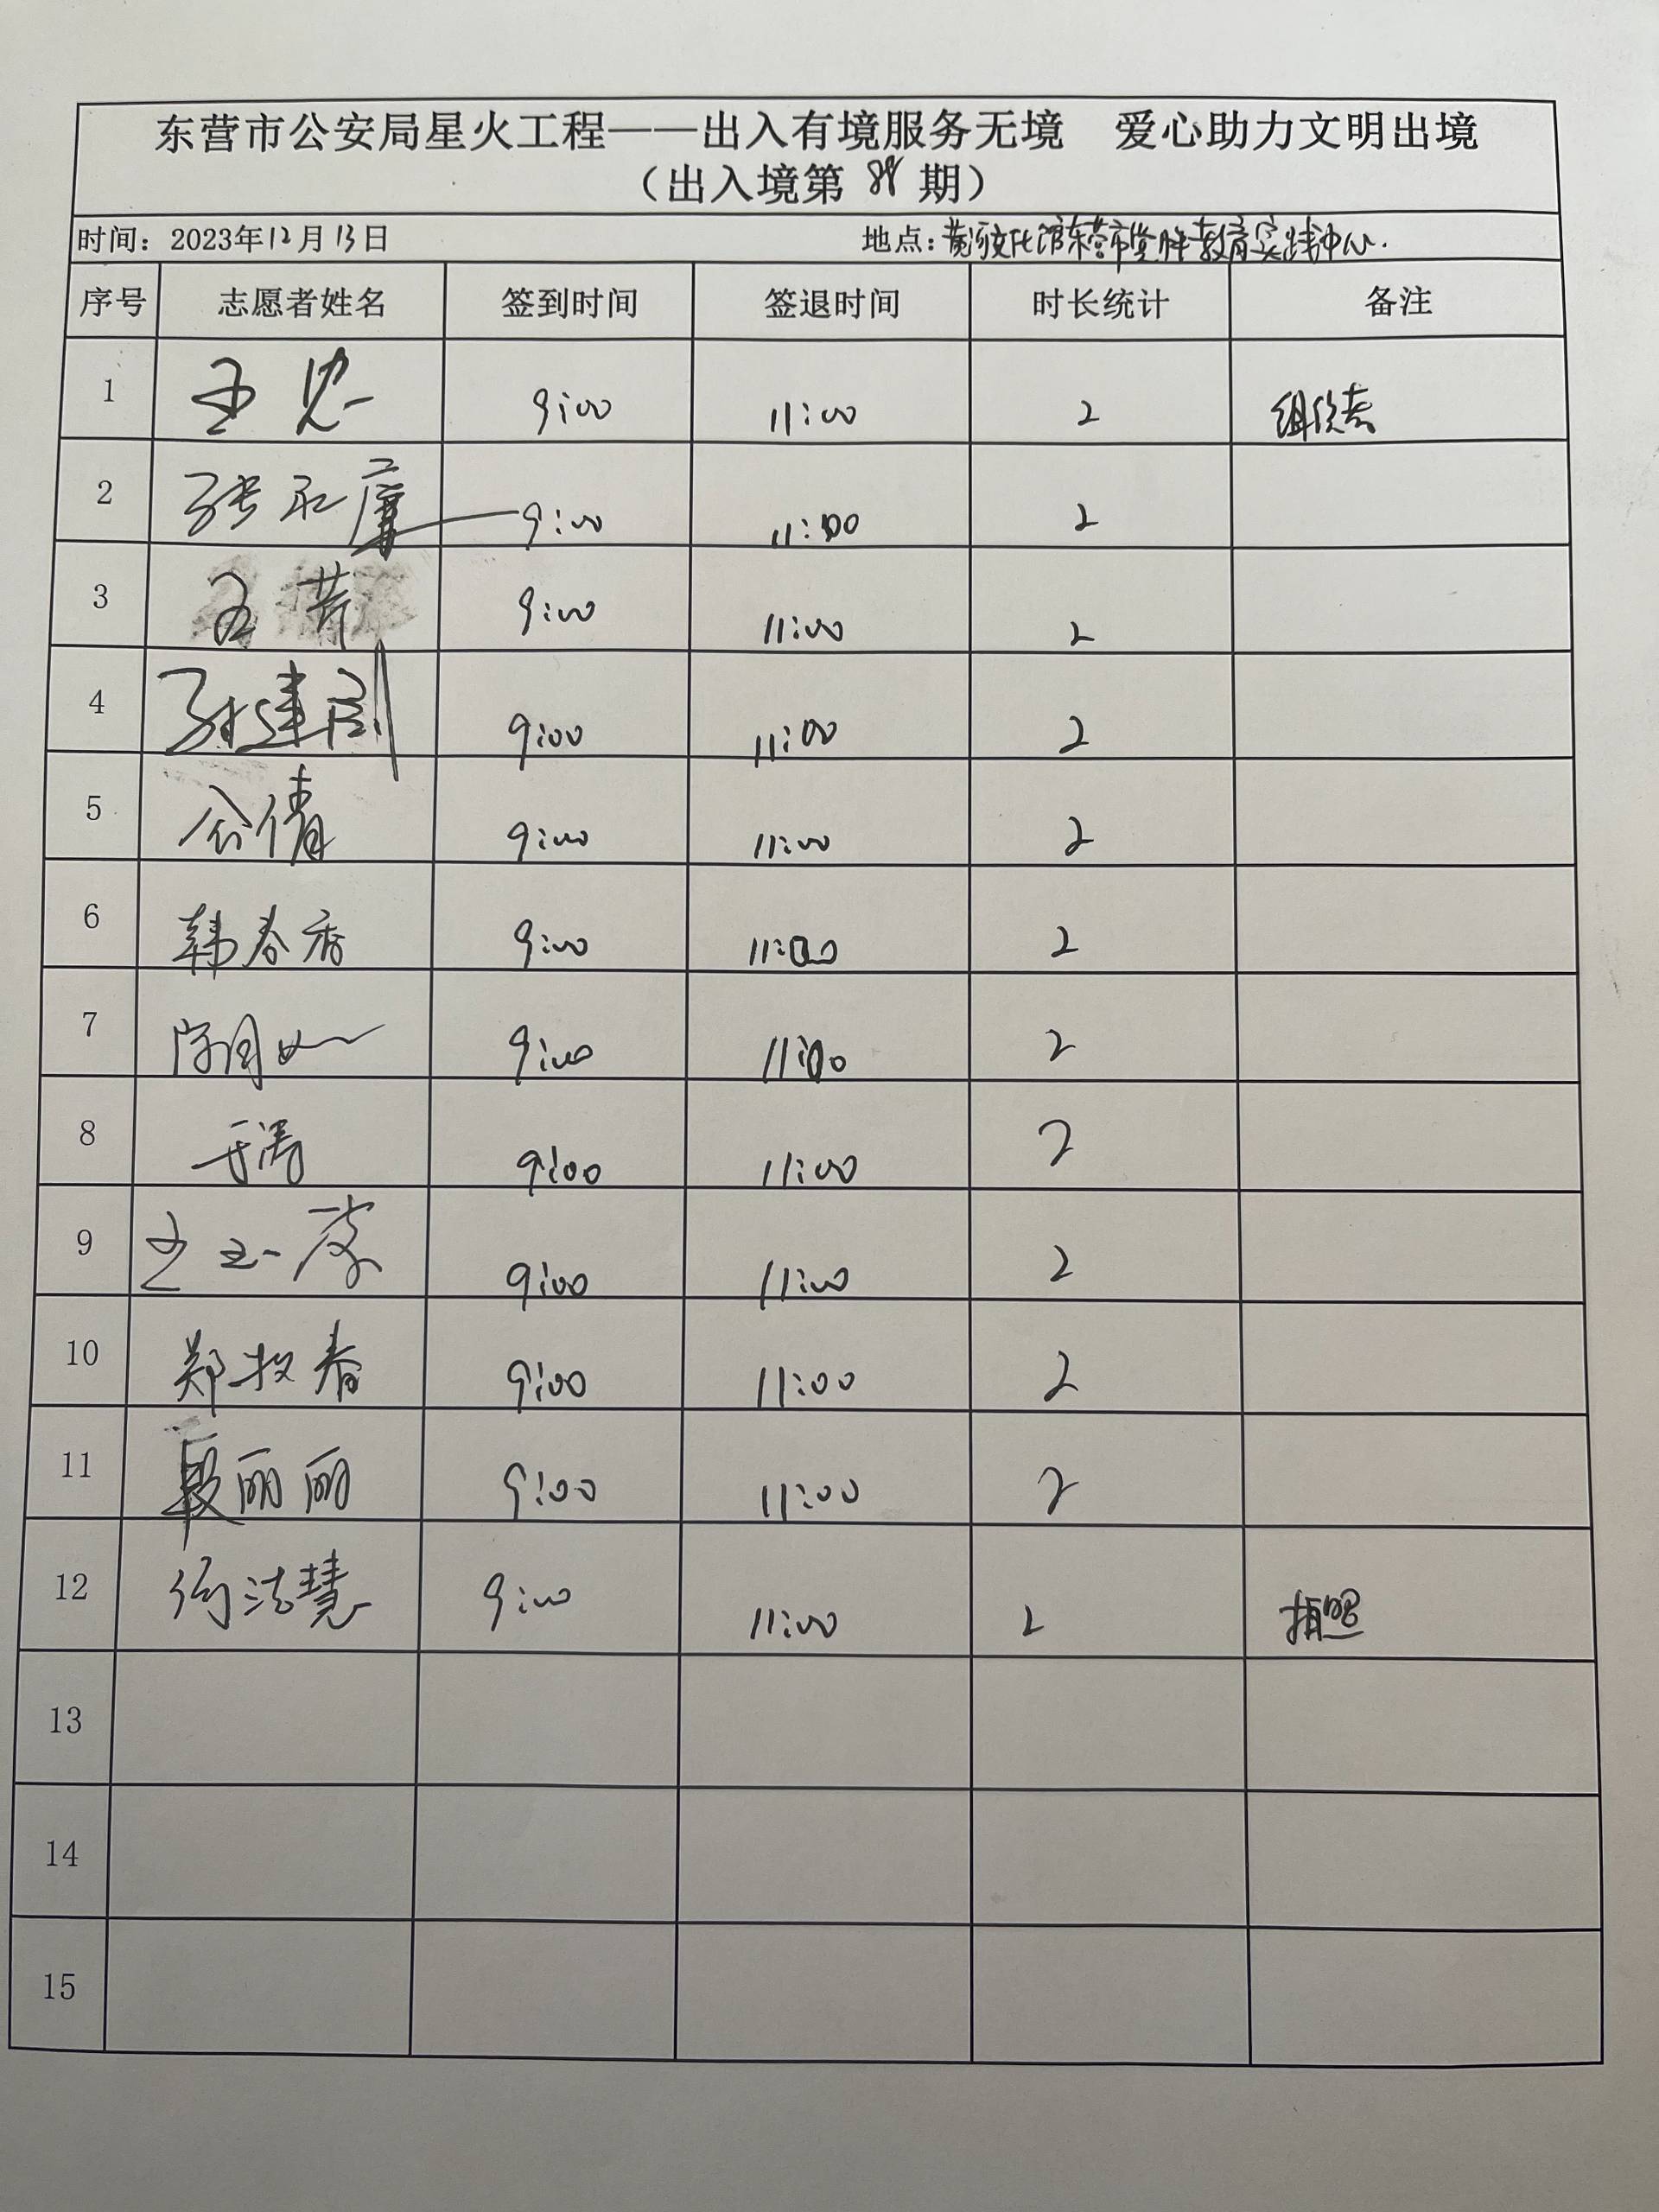 东营市公安局星火工程——出入有境服务无境 爱心助力文明出境
(出入境第 期)
时间:2023年12月13日 地点:黄河文化馆东营市党性教育实践中心.
序号 志愿者姓名 签到时间 签退时间 时长统计 备注
1 王忠 9:00 11:00 2 组织者
2 张永 9:00 11:00 2
3 王芳 9:00 11:00 2
4 孙建刚 9:00 11:00 2
5 公倩 9:00 11:00 2
6 韩春香 9:00 11:00 2
7 9:00 11:00 2
8 于涛 9:00 11:00 2
9 王玉 9:00 11:00 2
10 郑牧春 9:00 11:00 2
11 段丽丽 9:00 11:00 2
12 何洁慧 9:00 11:00 2 拍照
13
14
15